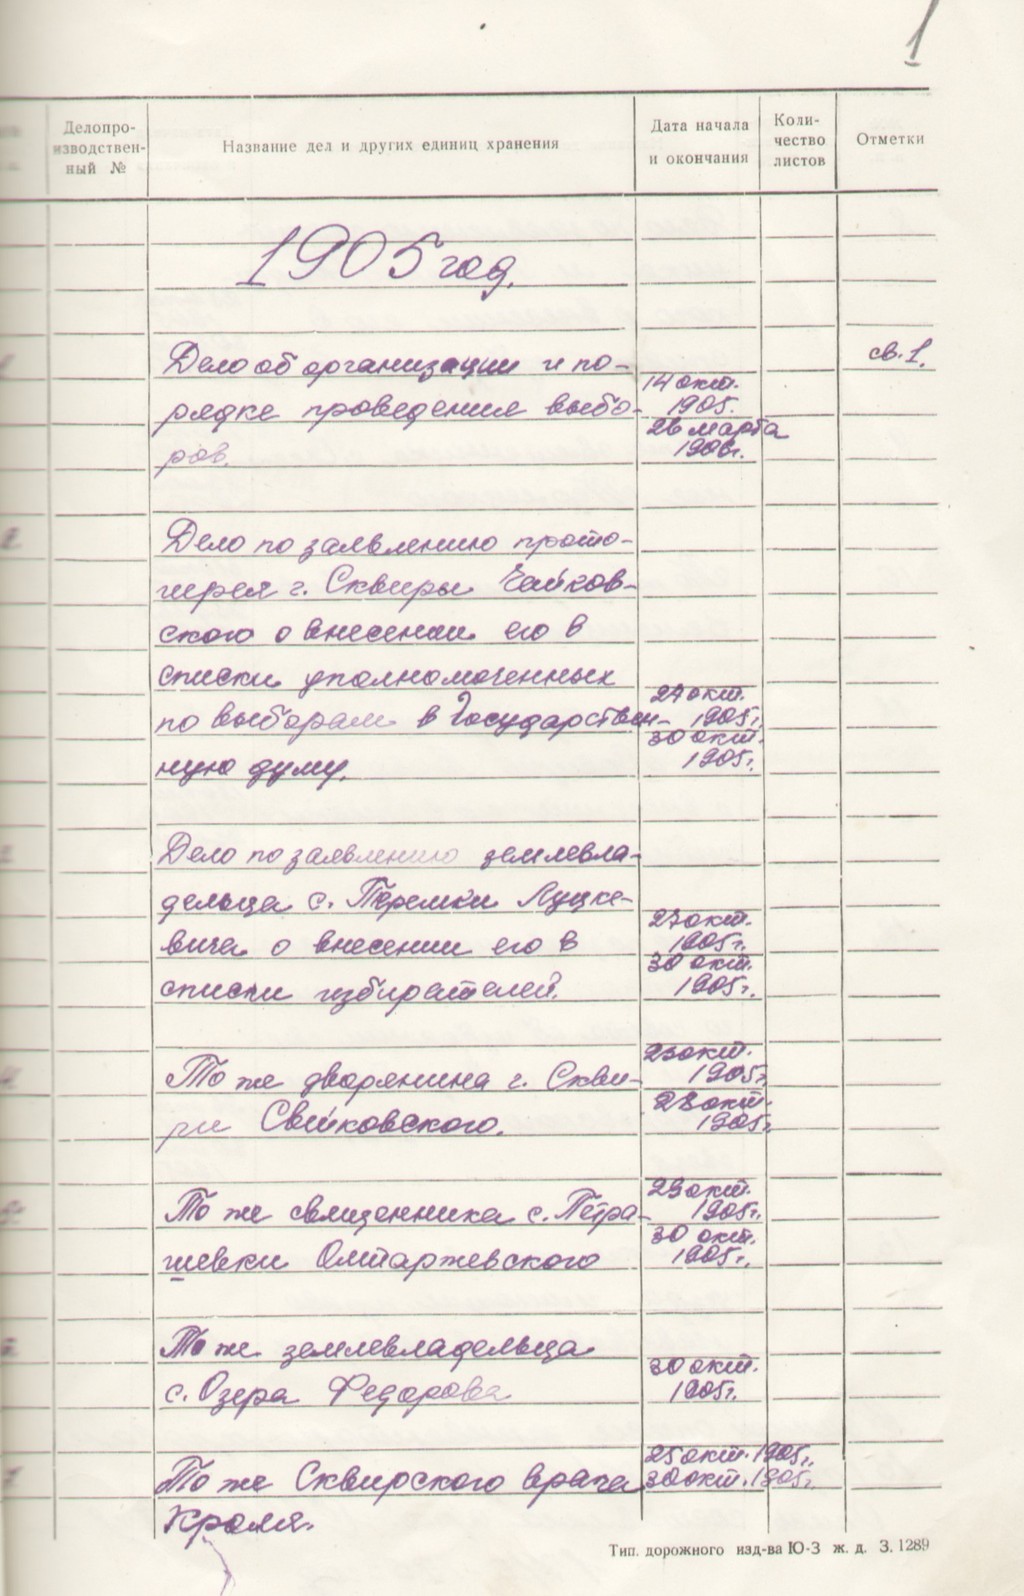 1
Делопро-
изводствен-
ный №
Название дел и других единиц хранения
Дата начала
и окончания
Коли-
чество
листов
Отметки
1905 год.
Дело об организации и по-
рядке проведения выбо-
ров.
14 окт.
1905.
26 марта
1906г.
св. 1.
2
Дело по заявлению прото-
иерея г. Сквиры Чайков-
ского о внесении его в
списки уполномоченных
по выборам в Государствен-
ную думу.
27 окт.
1905г.
30 окт.
1905г.
Дело по заявлению землевла-
дельца с. Перемки Луцке-
вича о внесении его в
списки избирателей.
27 окт.
1905г.
30 окт.
1905г.
То же дворянина г. Скви-
ры Свейковского.
23 окт.
1905г.
28 окт.
1905г.
То же священника с. Петра-
шевки Омтаржевского
29 окт.
1905г.
30 окт.
1905г.
То же землевладельца
с. Озера Федорова
30 окт.
1905г.
7
То же Сквирского врача
Кроля.
25 окт. 1905г.
30 окт. 1905г.
Тип. дорожного изд-ва Ю-З ж. д. З. 1289